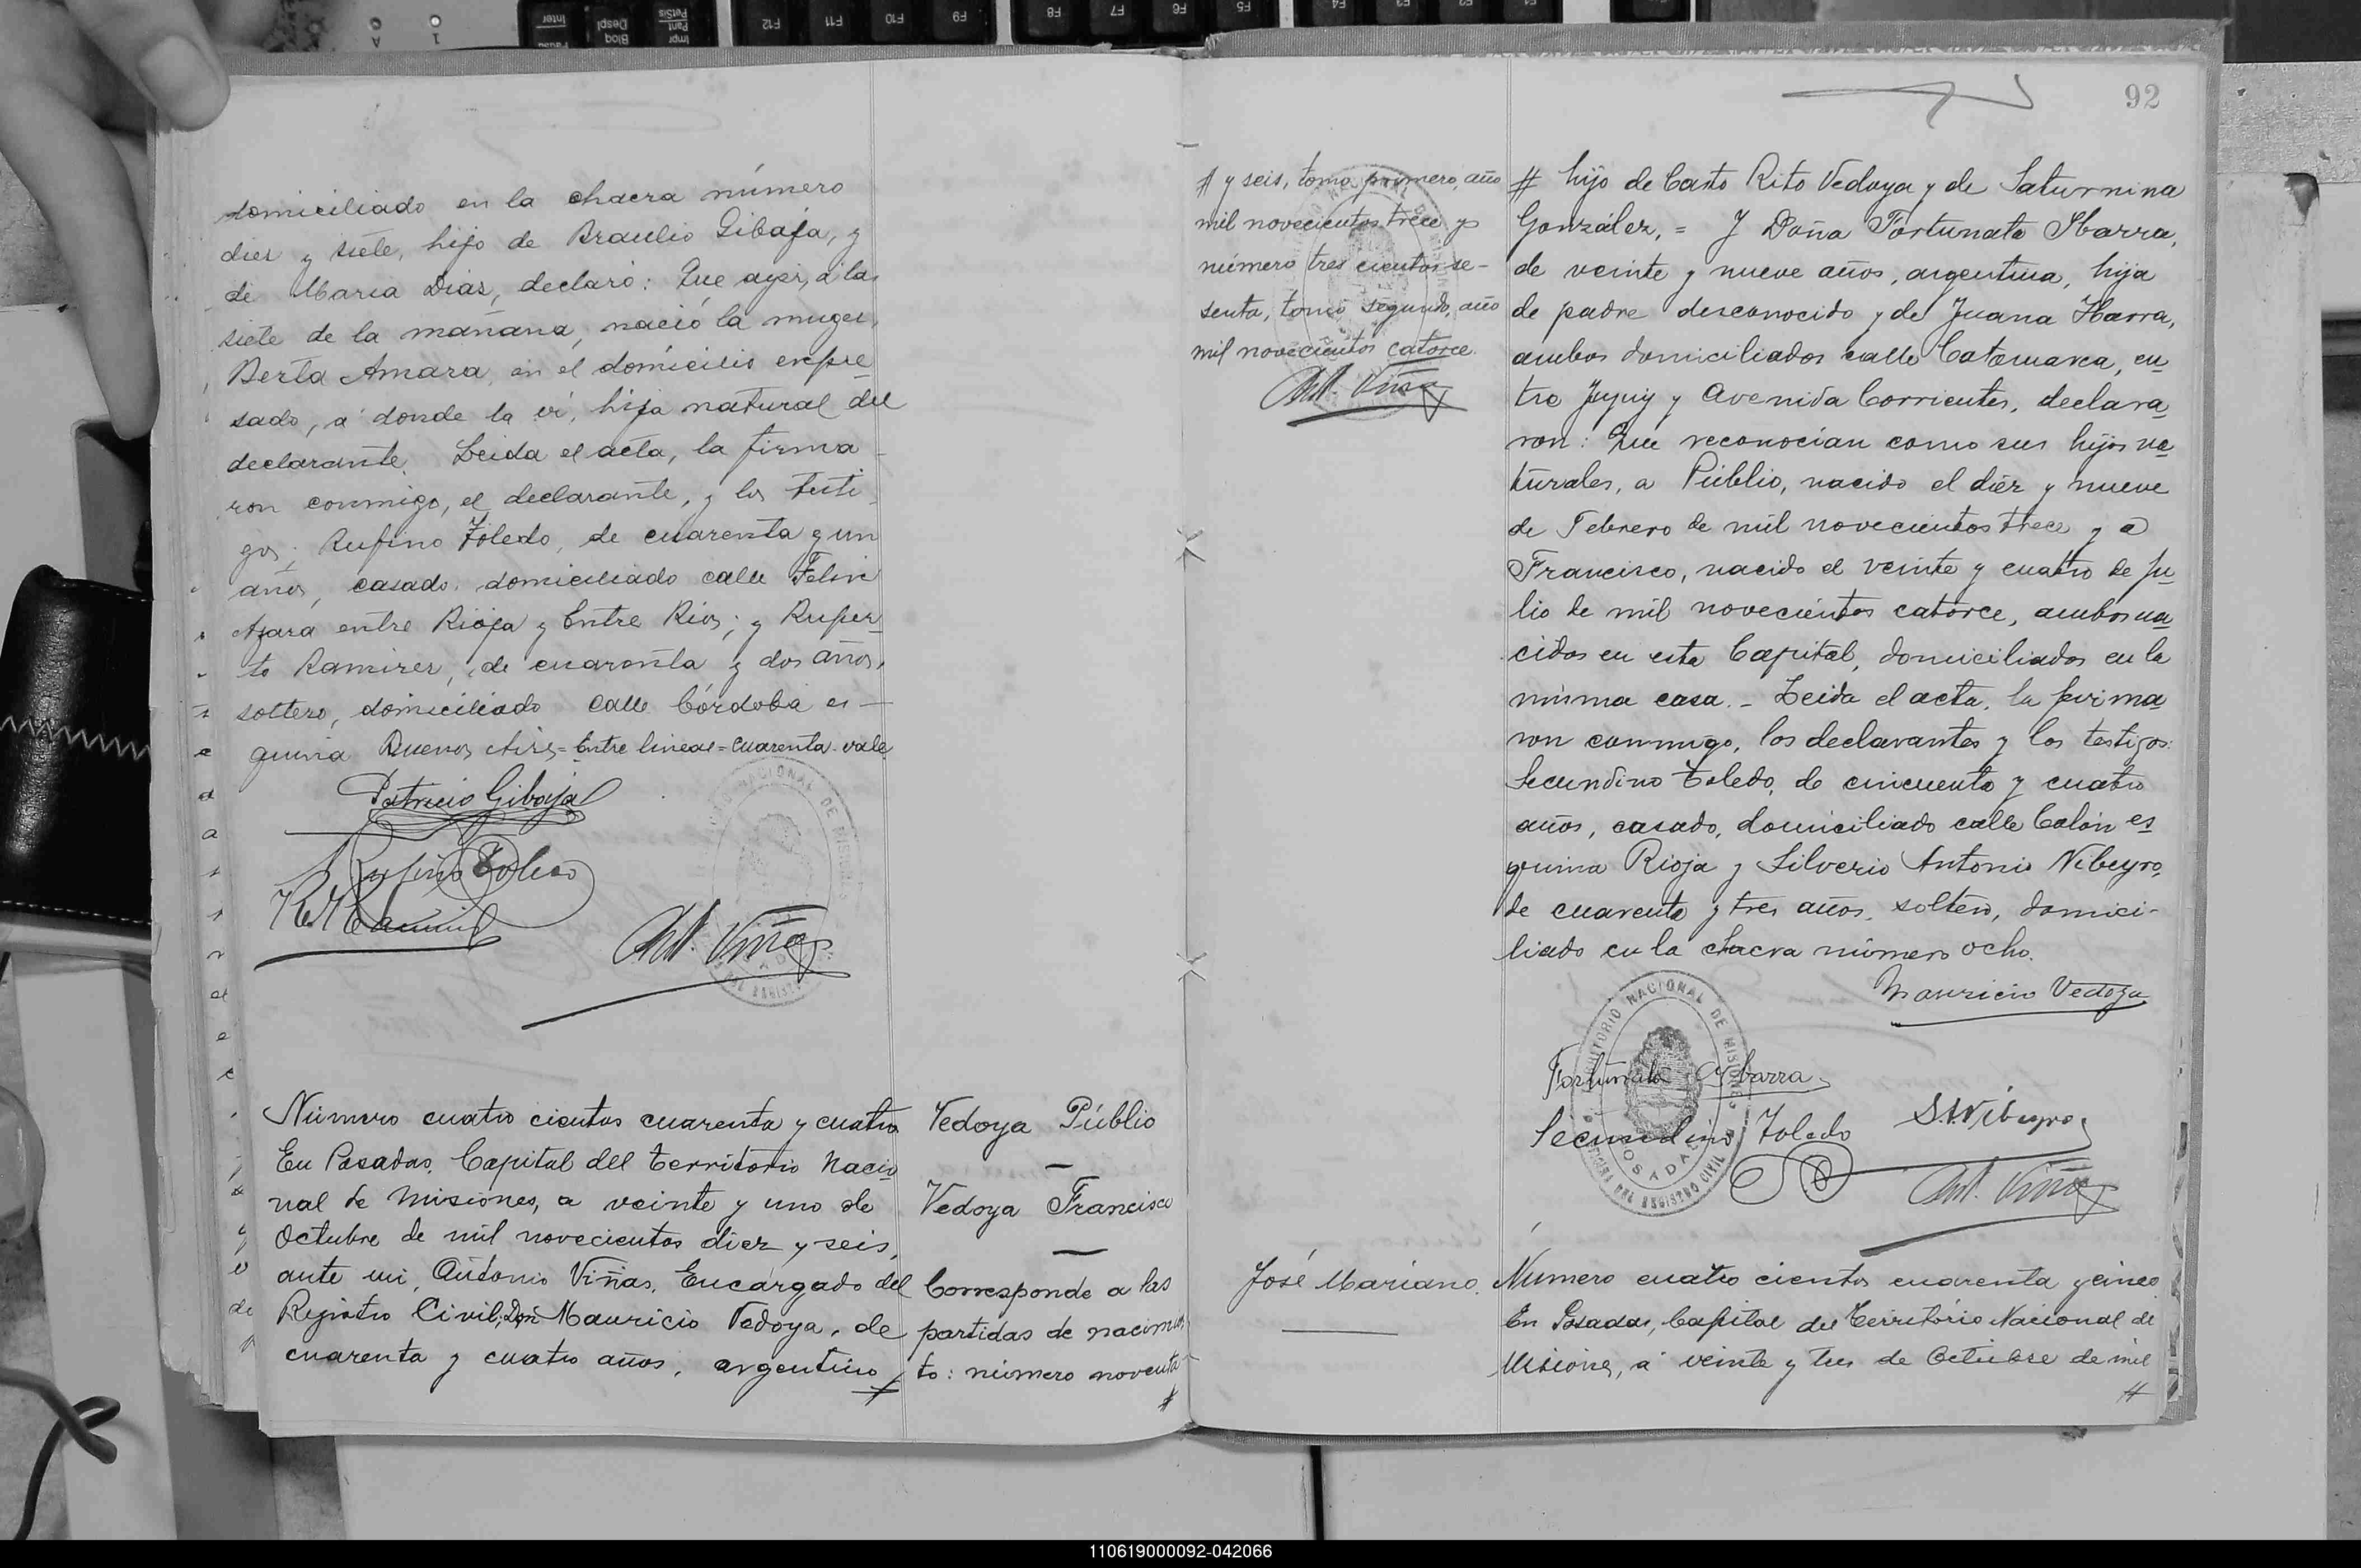 domiciliado en la chacra número
diez y siete, hijo de Braulio Gibaja, y
de Maria Diaz, declaró: Que ayer, á las
siete de la mañana, nació la muger,
Berta Amara, en el domicilio expre
sado, a donde la ví, hija natural del
declarante. Leida el acta, la firma
ron conmigo, el declarante, y los testi
gos; Rufino Toledo, de cuarenta y un
años, casado, domiciliado calle Felix
Azara entre Rioja y Entre Rios; y Ruper
to Ramirez, de cuarenta y dos años,
soltero, domiciliado calle Córdoba es
quina Buenos Aires = Entre lineas = cuarenta. vale
Patricio Gibaja
Rufino Toledo
R. Ramirez
Ant. Viñas
Número cuatro cientos cuarenta y cuatro
En Posadas, Capital del Territorio Nacio
nal de Misiones, a veinte y uno de
Octubre de mil novecientos diez y seis,
ante mi, Antonio Viñas, Encargado del
Registro Civil, Don Mauricio Vedoya, de
cuarenta y cuatro años, argentino #
Vedoya Públio
Vedoya Francisco
Corresponde a las
partidas de nacimien
to: número noventa
#
92
# y seis, tomo primero, año
mil novecientos trece y
número tres cientos se-
senta, tomo segundo, año
mil novecientos catorce.
Ant. Viñas
# hijo de Casto Rito Vedoya y de Saturnina
González, = Y Doña Fortunata Ibarra,
de veinte y nueve años, argentina, hija
de padre desconocido y de Juana Ibarra,
ambos domiciliados calle Catamarca, en
tre Jujuy y Avenida Corrientes, declara
ron: Que reconocian como sus hijos na
turales, a Públio, nacido el diéz y nueve
de Febrero de mil novecientos trece y a
Francisco, nacido el veinte y cuatro de ju
lio de mil novecientos catorce, ambos na
cidos en esta Capital, domiciliados en la
misma casa. - Leida el acta, la firma
ron conmigo, los declarantes y los testigos:
Secundino Toledo, de cincuenta y cuatro
años, casado, domiciliado calle Colón es
quina Rioja y Silverio Antonio Nibeyro,
de cuarenta y tres años, soltero, domici-
liado en la chacra número ocho.
Mauricio Vedoya
Fortunata Ybarra
Secundino Toledo
S.A. Nibeyro
Ant. Viñas
TERRITORIO NACIONAL DE MISIONES
OFICINA DEL REGISTRO CIVIL
POSADAS
José Mariano.
Número cuatro cientos cuarenta y cinco
En Posadas, Capital del Territorio Nacional de
Misiones, a veinte y tres de Octubre de mil
#
110619000092-042066